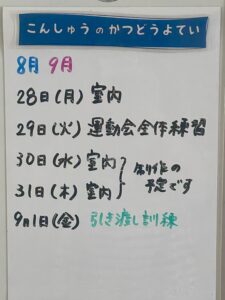 こんしゅうのかつどうよてい
8月 9月
28日(月) 室内
29日(火) 運動会全体練習
30日(水) 室内
31日(木) 室内
制作の
予定です
9月1日(金) 引き渡し訓練